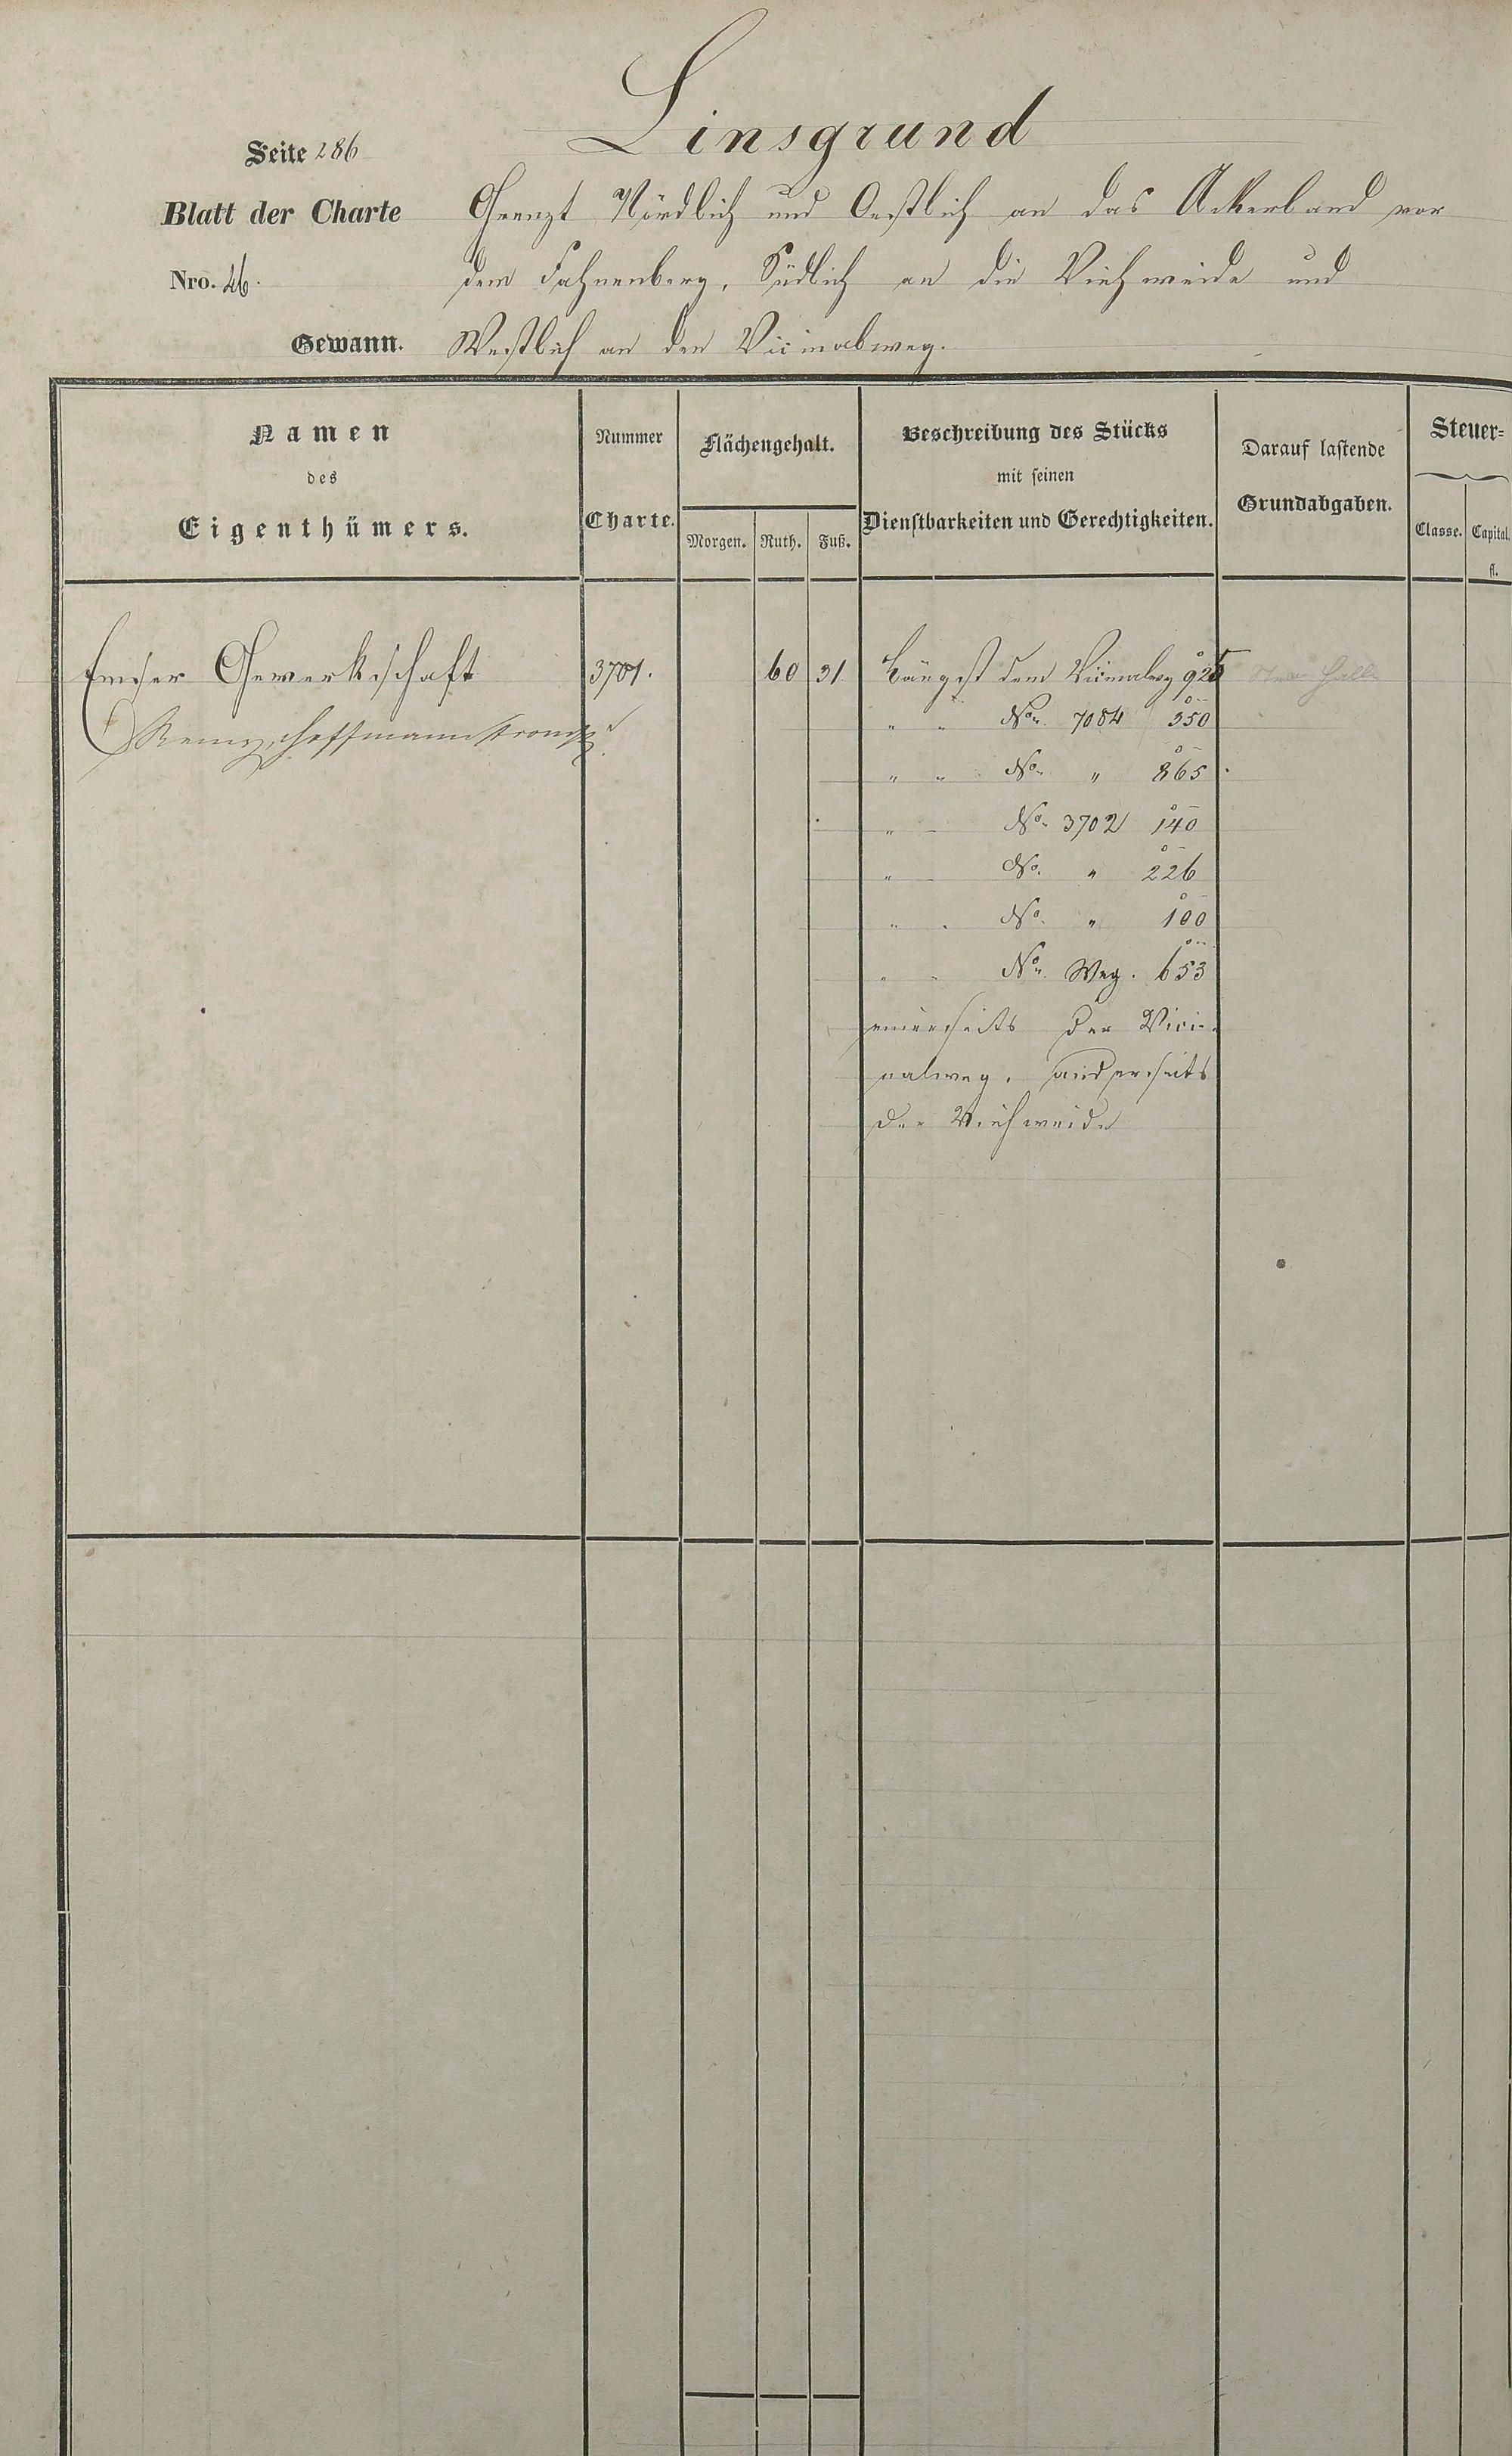 Linsgrund
Seite 286
Blatt der Charte
Nro. 26.
Gewann.
Grenzt Nördlich und Oestlich an das Ackerland vor
dem Fahnenberg, Südlich an die Viehweide und
Westlich an den Vicinalweg.
Namen
des
Eigenthümers.
Nummer
Charte.
Flächengehalt.
Morgen. Ruth. Fuß.
Beschreibung des Stücks
mit seinen
Dienstbarkeiten und Gerechtigkeiten.
Darauf lastende
Grundabgaben.
Steuer-
Classe. Capital.
fl.
Emser Gewerkschaft 3701. 60 31 Längst dem Vicinalweg 925
Remy, Hoffmann
" " No. 7084 350
" " No. " 865
" " No. 3702 140
" " No. " 226
" " No. " 100
" " No. Weg. 653
einerseits der Vici-
nalweg, anderseits
der Viehweide